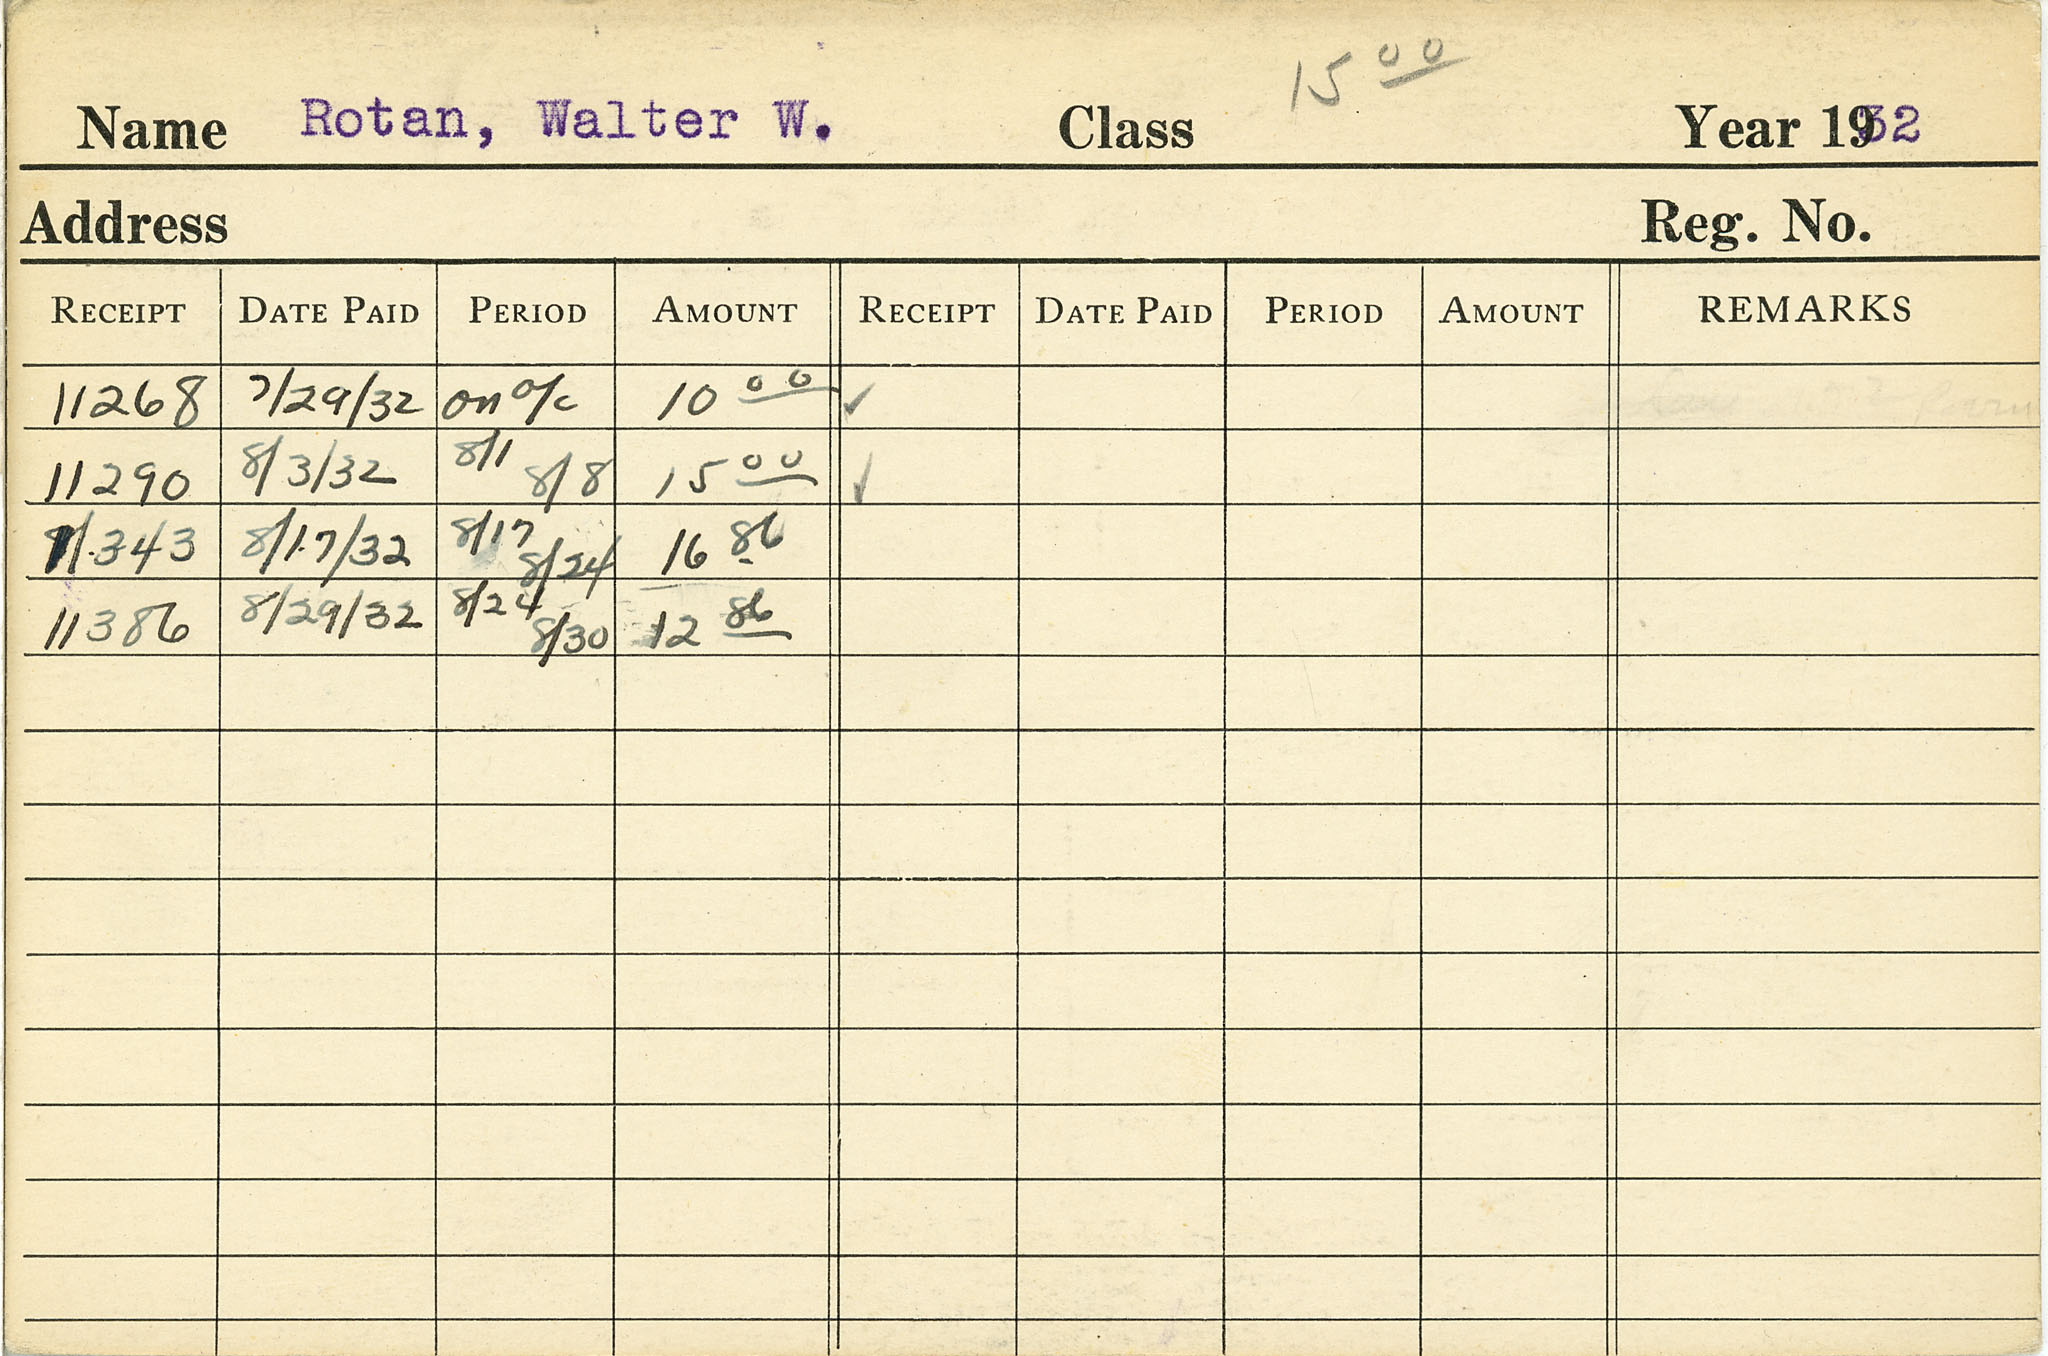 Name Rotan, Walter W. Class 15 00 Year 1932
Address Reg. No.
RECEIPT DATE PAID PERIOD AMOUNT RECEIPT DATE PAID PERIOD AMOUNT REMARKS
11268 7/29/32 on a/c 10 00 ✓
11290 8/3/32 8/1 8/8 15 00 ✓
11343 8/17/32 8/17 8/24 16 86
11386 8/29/32 8/24 8/30 12 86